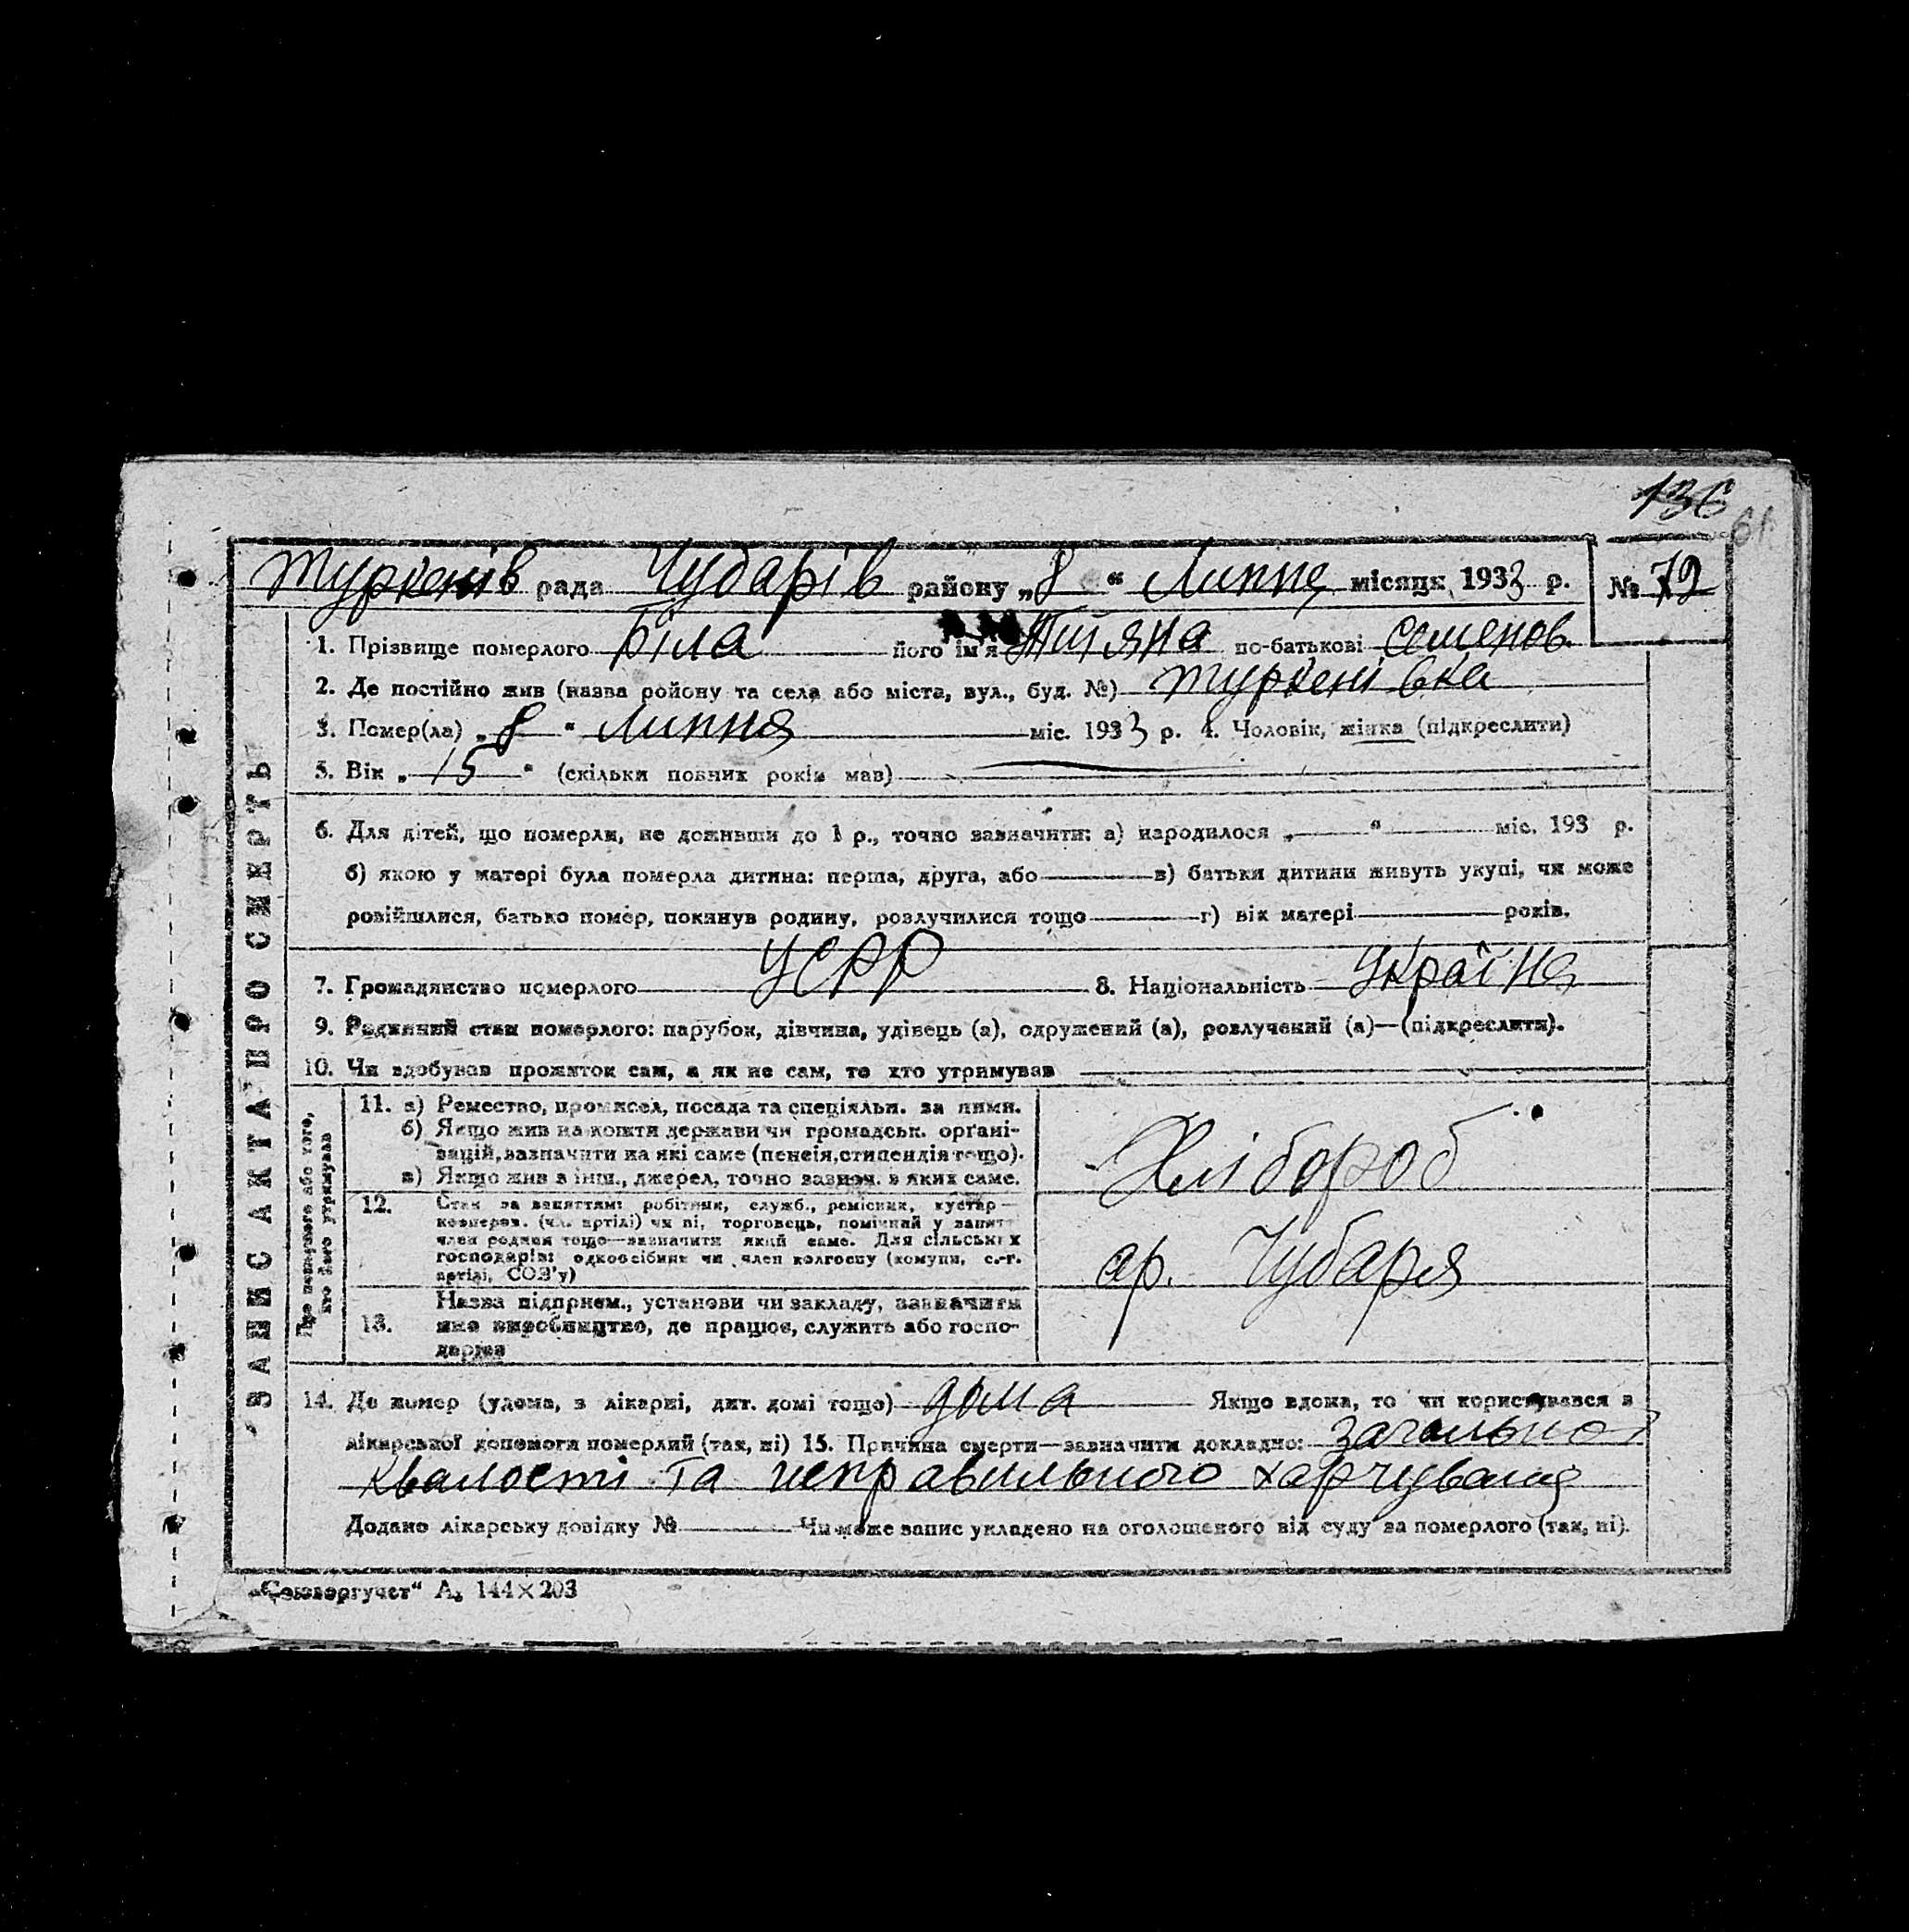 136
61
Туркенів рада Чубарів району „8“ Липня місяця 1933 р. № 79
ЗАПИС АКТА ПРО СМЕРТЬ
1. Прізвище померлого Біла його ім'я Тітяна по-батькові Семенов
2. Де постійно жив (назва району та села або міста, вул., буд. №) Туркенівка
3. Помер(ла) „8“ Липня міс. 1933 р. 4. Чоловік, жінка (підкреслити)
5. Вік „15“ (скільки повних років мав)
6. Для дітей, що померли, не доживши до 1 р., точно зазначити: а) народилося „ “ міс. 193 р.
б) якою у матері була померла дитина: перша, друга, або в) батьки дитини живуть укупі, чи може
розійшлися, батько помер, покинув родину, розлучилися тощо г) вік матері років.
7. Громадянство померлого УСРР 8. Національність Україна
9. Родинний стан померлого: парубок, дівчина, удівець (а), одружений (а), розлучений (а)—(підкреслити).
10. Чи здобував прожиток сам, а як не сам, то хто утримував
Про померлого або того, хто його утримував
11. а) Ремество, промисел, посада та спеціяльн. за ними.
б) Якщо жив на кошти держави чи громадськ. орґані-
зацій, зазначити на які саме (пенсія, стипендія тощо).
в) Якщо жив з інш., джерел, точно зазнач. з яких саме.
Хлібороб
12. Стан за заняттям: робітник, служб., ремісник, кустар—
кооперов. (чл. артілі) чи ні, торговець, помічний у занятт
член родини тощо—зазначити який саме. Для сільських
господарів: одноосібник чи член колгоспу (комуни, с.-г.
артілі, СОЗ'у)
ар. Чубаря
13. Назва підприєм., установи чи закладу, зазначити
яке виробництво, де працює, служить або госпо-
дарює
14. Де помер (удома, в лікарні, дит. домі тощо) дома Якщо вдома, то чи користувався з
лікарської допомоги померлий (так, ні) 15. Причина смерти—зазначити докладно: загально
квалості та неправильного харчування
Додано лікарську довідку № Чи може запис укладено на оголошеного від суду за померлого (так, ні).
„Союзоргучет“ А₅ 144×203